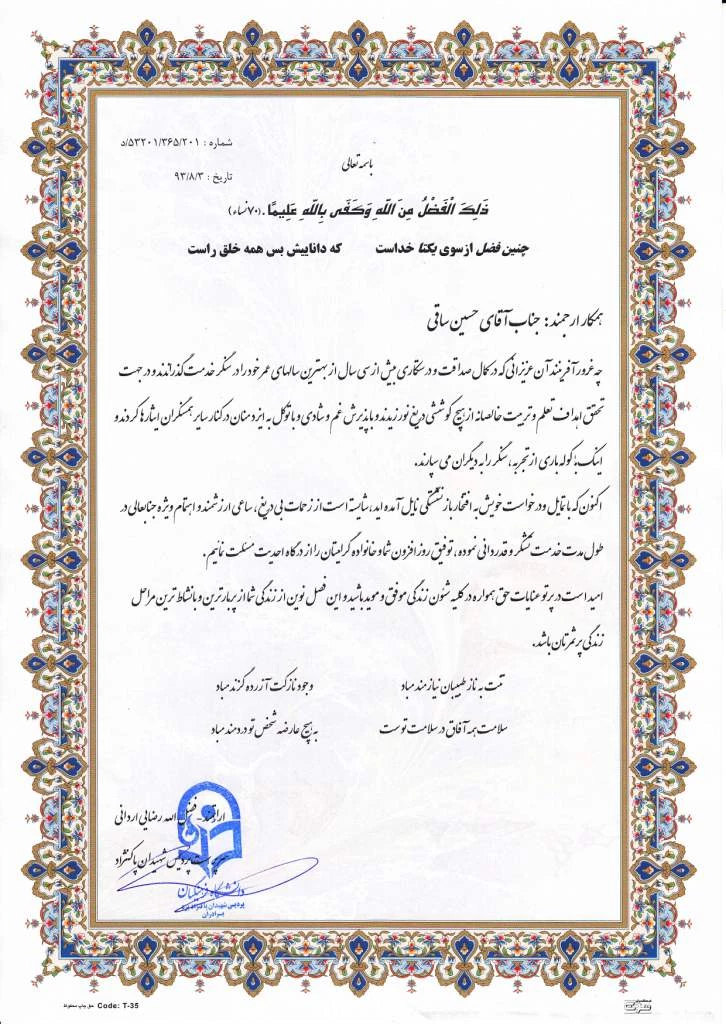 شماره : ۵۳۲۰۱/۳۶۵/۲۰۱/د
باسمه تعالی
تاریخ : ۹۳/۸/۳
ذَلِكَ الْفَضْلُ مِنَ اللّهِ وَكَفَى بِاللّهِ عَلِيمًا. (۷۰ نساء)
چنین فضل از سوی یکتا خداست که داناییش بس همه خلق راست
همکار ارجمند : جناب آقای حسین ساقی
چه غرورآفرینند آن عزیزانی که در کمال صداقت و درستکاری بیش از سی سال از بهترین سالهای عمر خود را در سنگر خدمت گذراندند و در جهت
تحقق اهداف تعلیم و تربیت خالصانه از هیچ کوششی دریغ نورزیدند و با پذیرش غم و شادی و با توکل به ایزد منان در کنار سایر همسنگران ایثارها کردند و
اینک با کوله باری از تجربه ، سنگر را به دیگران می سپارند .
اکنون که با تمایل و درخواست خویش به افتخار بازنشستگی نایل آمده اید، شایسته است از زحمات بی دریغ ، ساعی ارزشمند و اهتمام ویژه جنابعالی در
طول مدت خدمت تشکر و قدردانی نموده ، توفیق روز افزون شما و خانواده گرامیتان را از درگاه احدیت مسئلت نمائیم .
امید است در پرتو عنایات حق همواره در کلیه شئون زندگی موفق و موید باشید و این فصل نوین از زندگی شما از پربارترین و بانشاط ترین مراحل
زندگی پرثمرتان باشد .
تنت به ناز طبیبان نیازمند مباد وجود نازکت آزرده گزند مباد
سلامت همه آفاق در سلامت توست به هیچ عارضه شخص تو دردمند مباد
ارادتمند - فضل الله رضایی اردانی
سرپرست پردیس شهیدان پاکنژاد
دانشگاه فرهنگیان
پردیس شهیدان پاکنژاد یزد
برادران
حق چاپ محفوظ Code: T-35